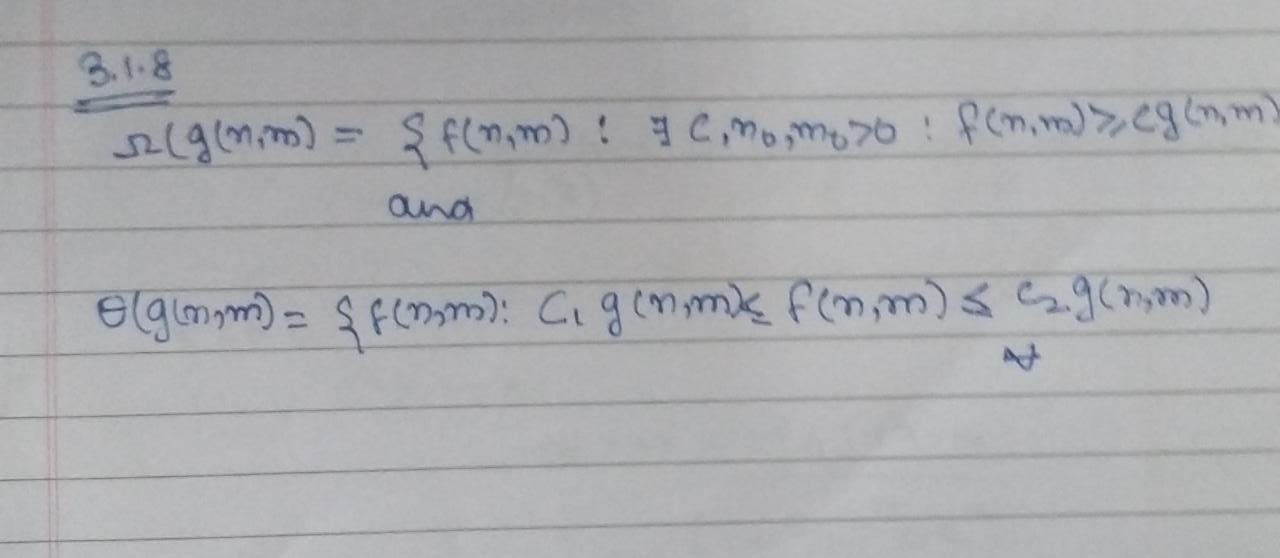 3.1.8
Ω(g(n,m) = { f(n,m) : ∃ c, n₀, m₀>0 : f(n,m) ≥ cg(n,m)
and
θ(g(n,m) = { f(n,m): C₁ g(n,m) ≤ f(n,m) ≤ C₂ g(n,m)